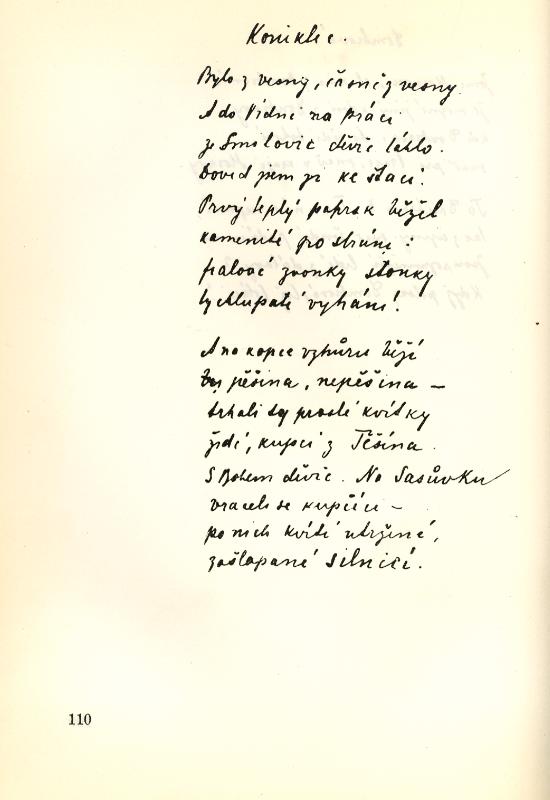 Koniklec.
Bylo z vesny, časně z vesny
A do Vídně na práci
ze Smilovic děvče táhlo.
Doved jsem ji ke štaci.
Prvý teplý paprsek běžel
kamenité po stráni:
fialové zvonky stonky
ty chlupaté vyhání!
A na kopce vzhůru běží
pěšina, nepěšina –
trhali ty prosté kvítky
židé, kupci z Těšína.
S Bohem děvče. Na Sasůvku
vraceli se kupčíci –
po nich kvítí utržené,
zašlapané silnicí.
110